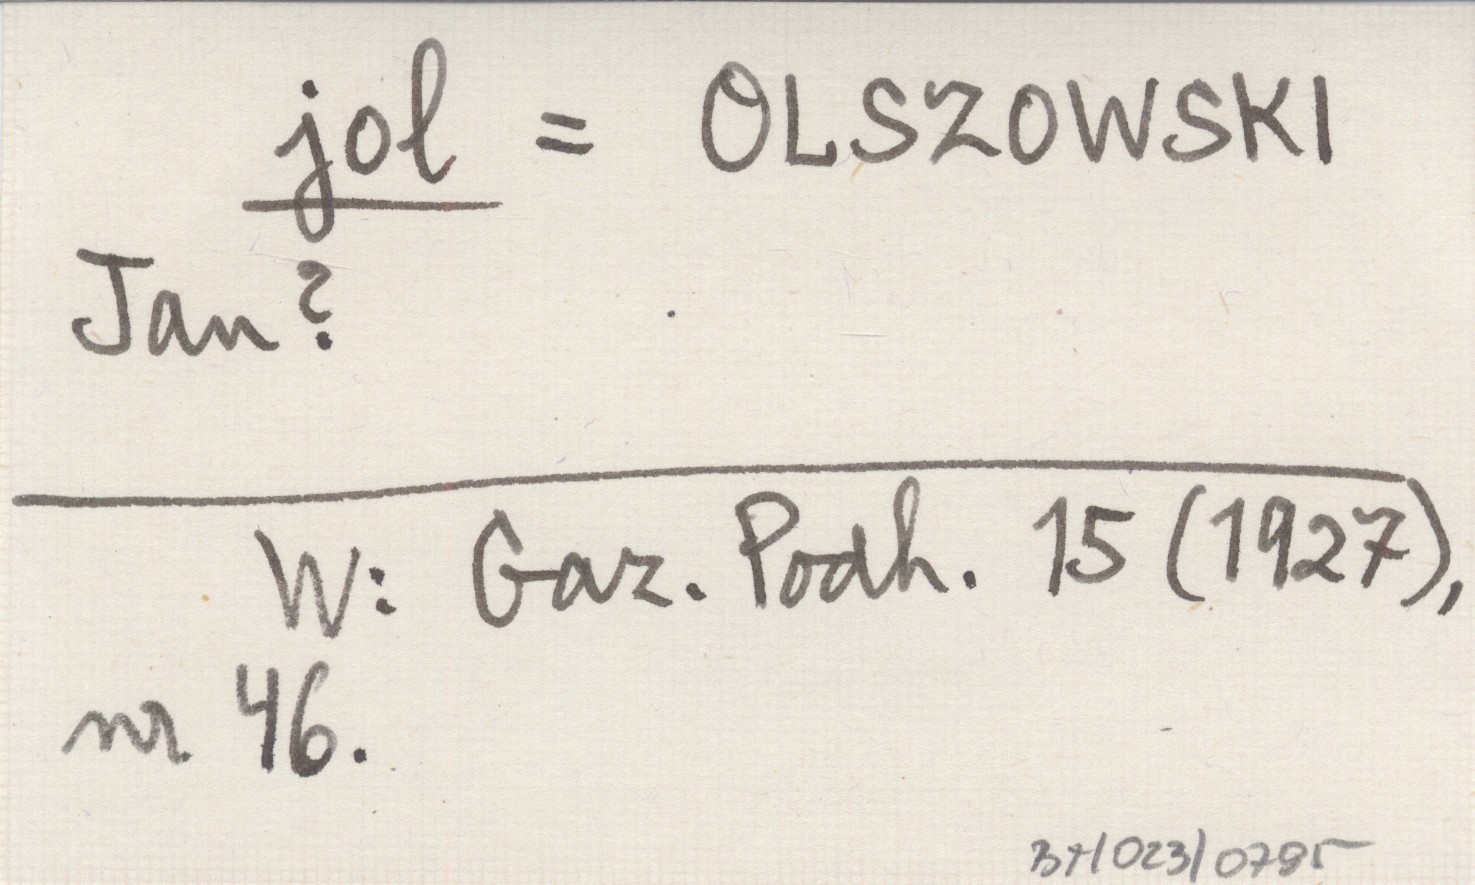 jol = OLSZOWSKI
Jan?
W: Gaz. Podh. 15 (1927),
nr 46.